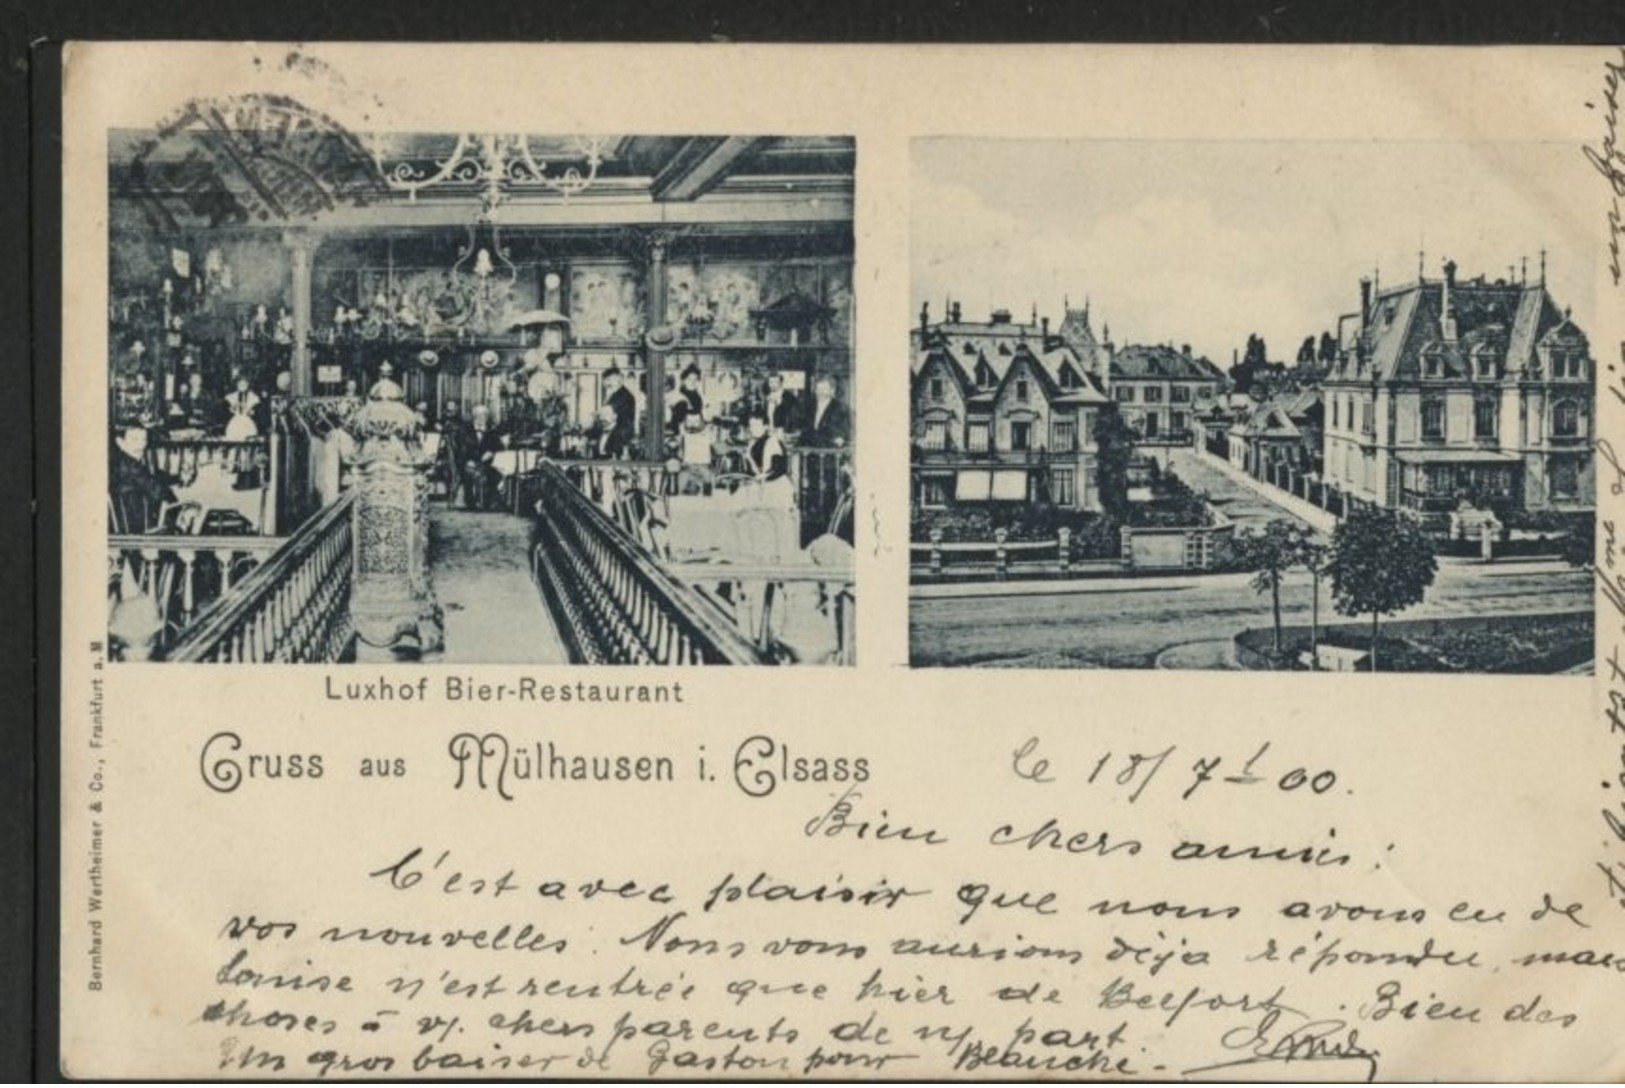 Luxhof Bier-Restaurant
Gruss aus Mülhausen i. Elsass
le 18/7 00.
Bien chers amis:
C'est avec plaisir que nous avons eu de
vos nouvelles. Nous vous aurions déja répondu, mais
Louise n'est rentrée que hier de Belfort. Bien des
choses à v/. chers parents de n/. part
Un gros baiser de Gaston pour Blanche.-
Bernhard Wertheimer & Co., Frankfurt a. M
un baiser